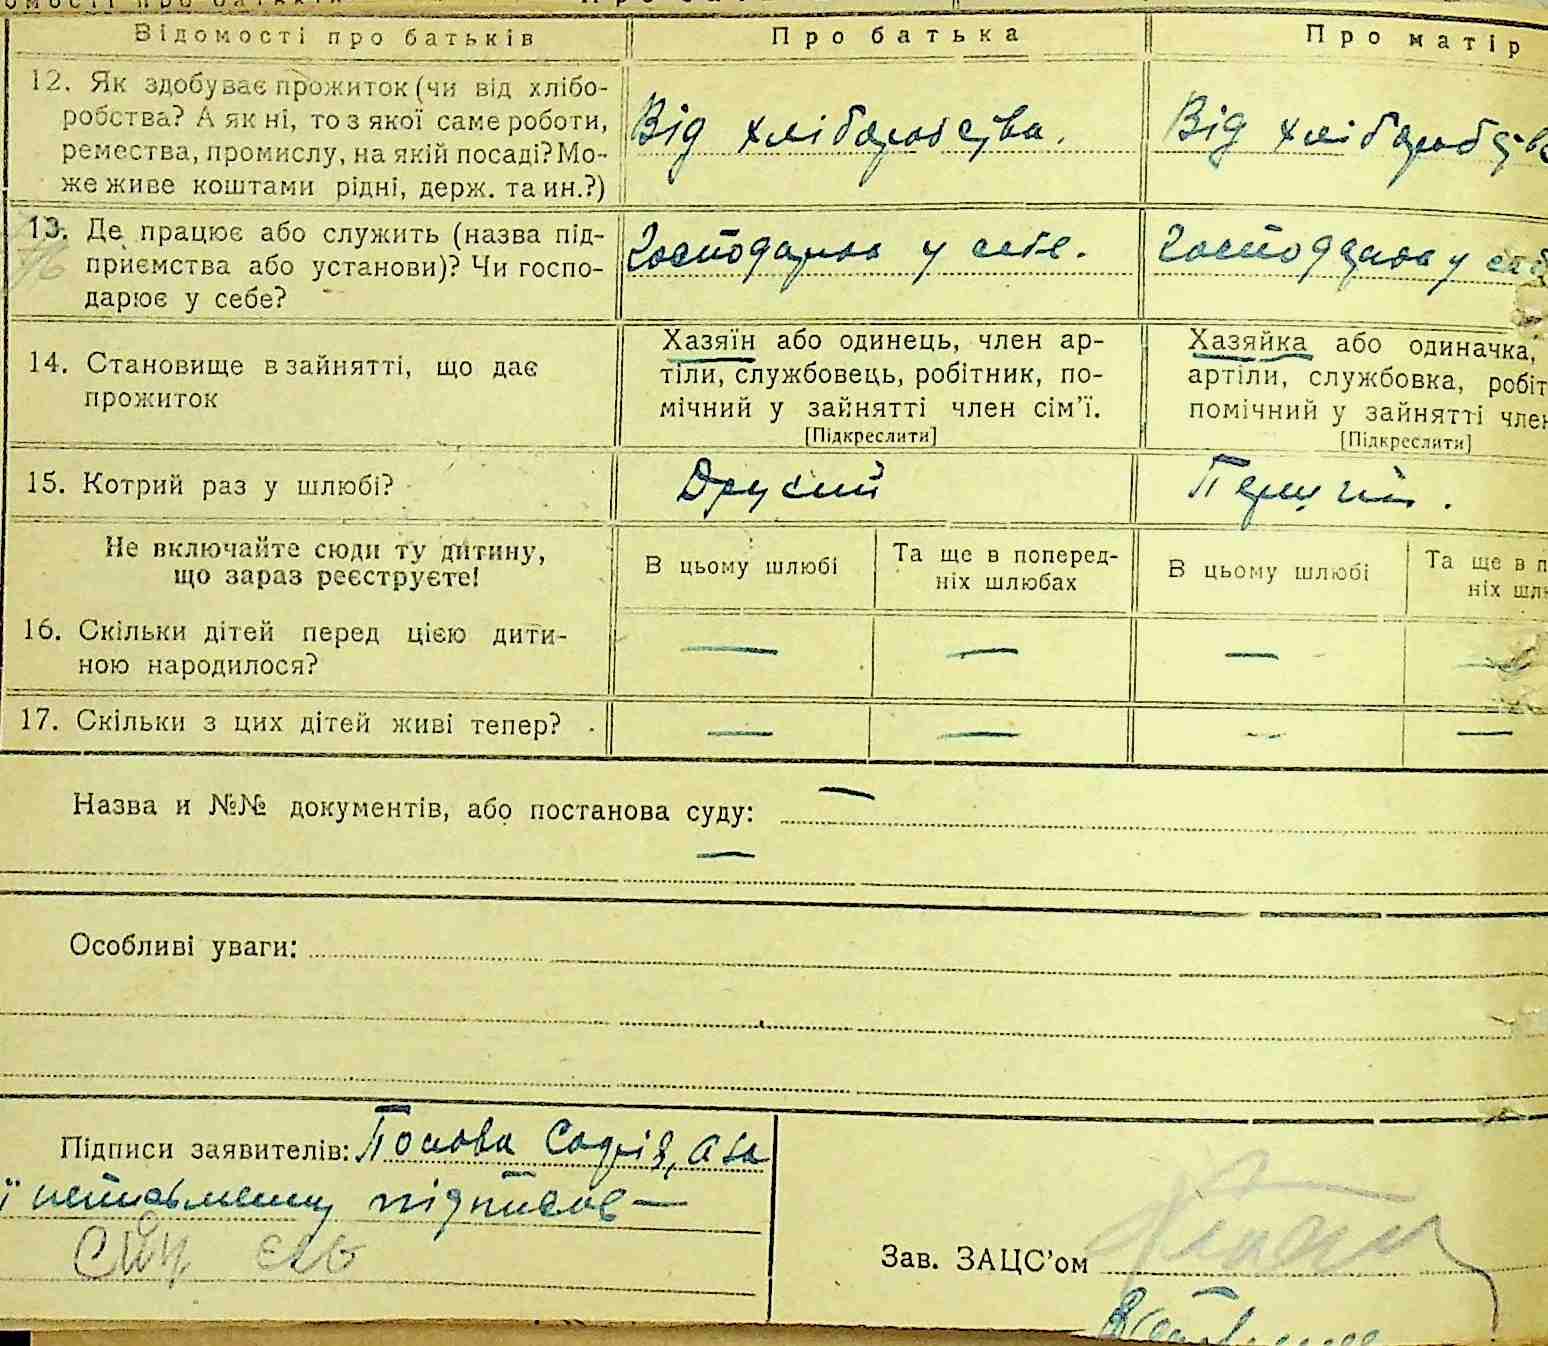 Відомості про батьків
Про батька
Про матір
12. Як здобуває прожиток (чи від хлібо-
робства? А як ні, то з якої саме роботи,
ремества, промислу, на якій посаді? Мо-
же живе коштами рідні, держ. та ин.?)
Від хліборобства.
Від хліборобства
13. Де працює або служить (назва під-
приємства або установи)? Чи госпо-
дарює у себе?
Господарює у себе.
Господарює у себе
14. Становище в зайнятті, що дає
прожиток
Хазяїн або одинець, член ар-
тіли, службовець, робітник, по-
мічний у зайнятті член сім'ї.
[Підкреслити]
Хазяйка або одиначка,
артіли, службовка, робіт
помічний у зайнятті член
[Підкреслити]
15. Котрий раз у шлюбі?
Другий
Перший.
Не включайте сюди ту дитину,
що зараз реєструєте!
В цьому шлюбі
Та ще в поперед-
ніх шлюбах
В цьому шлюбі
Та ще в п
ніх шл
16. Скільки дітей перед цією дити-
ною народилося?
— — — —
17. Скільки з цих дітей живі тепер?
— — — —
Назва и №№ документів, або постанова суду: —
—
Особливі уваги:
Підписи заявителів: Попова Софія, а за
її неписьменну підписав —
Зав. ЗАЦС'ом